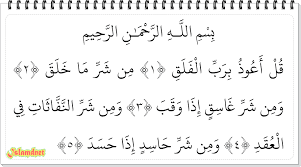 بِسْمِ اللَّـهِ الرَّحْمَـٰنِ الرَّحِيمِ
قُلْ أَعُوذُ بِرَبِّ الْفَلَقِ ﴿١﴾ مِن شَرِّ مَا خَلَقَ ﴿٢﴾
وَمِن شَرِّ غَاسِقٍ إِذَا وَقَبَ ﴿٣﴾ وَمِن شَرِّ النَّفَّاثَاتِ فِي
الْعُقَدِ ﴿٤﴾ وَمِن شَرِّ حَاسِدٍ إِذَا حَسَدَ ﴿٥﴾
Islamdoet